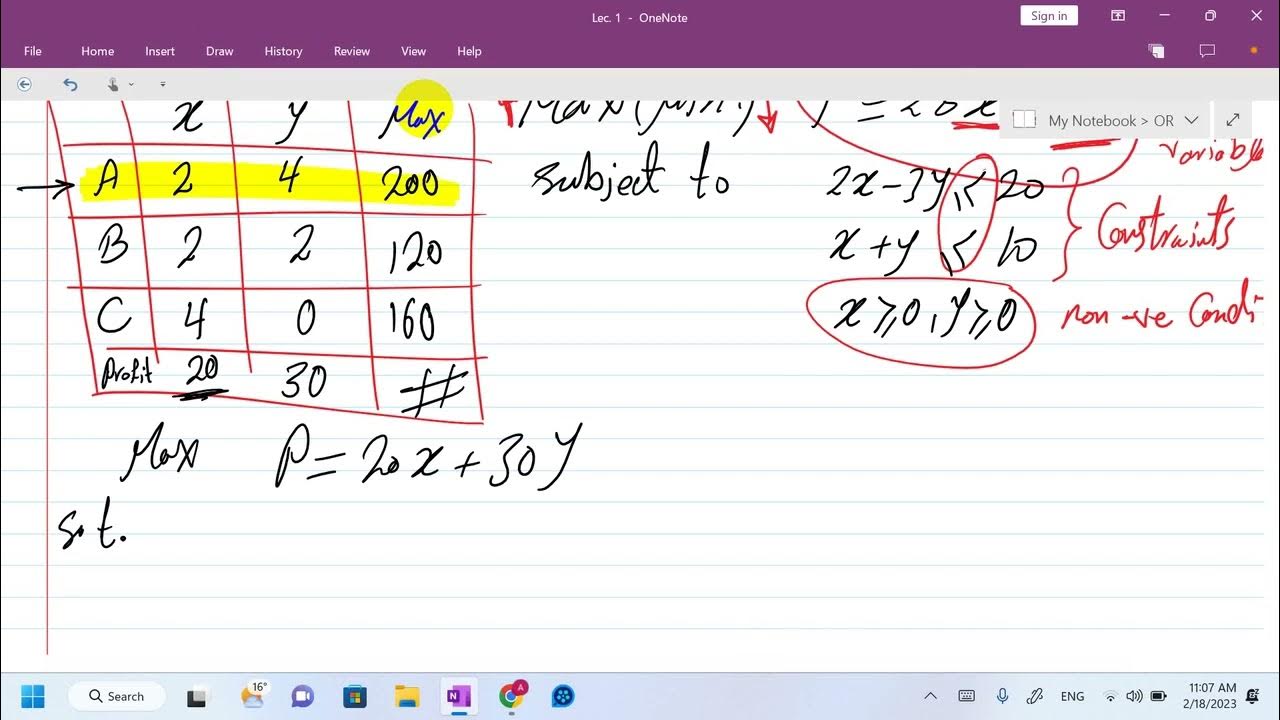 Lec. 1 - OneNote
Sign in
File Home Insert Draw History Review View Help
x y Max
Max
My Notebook > OR
variable
A 2 4 200
subject to 2x-3y ≤ 20
B 2 2 120
x+y ≤ 10
Constraints
C 4 0 160
x ≥ 0, y ≥ 0
non -ve Condi
Profit 20 30 #
Max P = 20x + 30y
s.t.
16°
Search
A
ENG
11:07 AM
2/18/2023